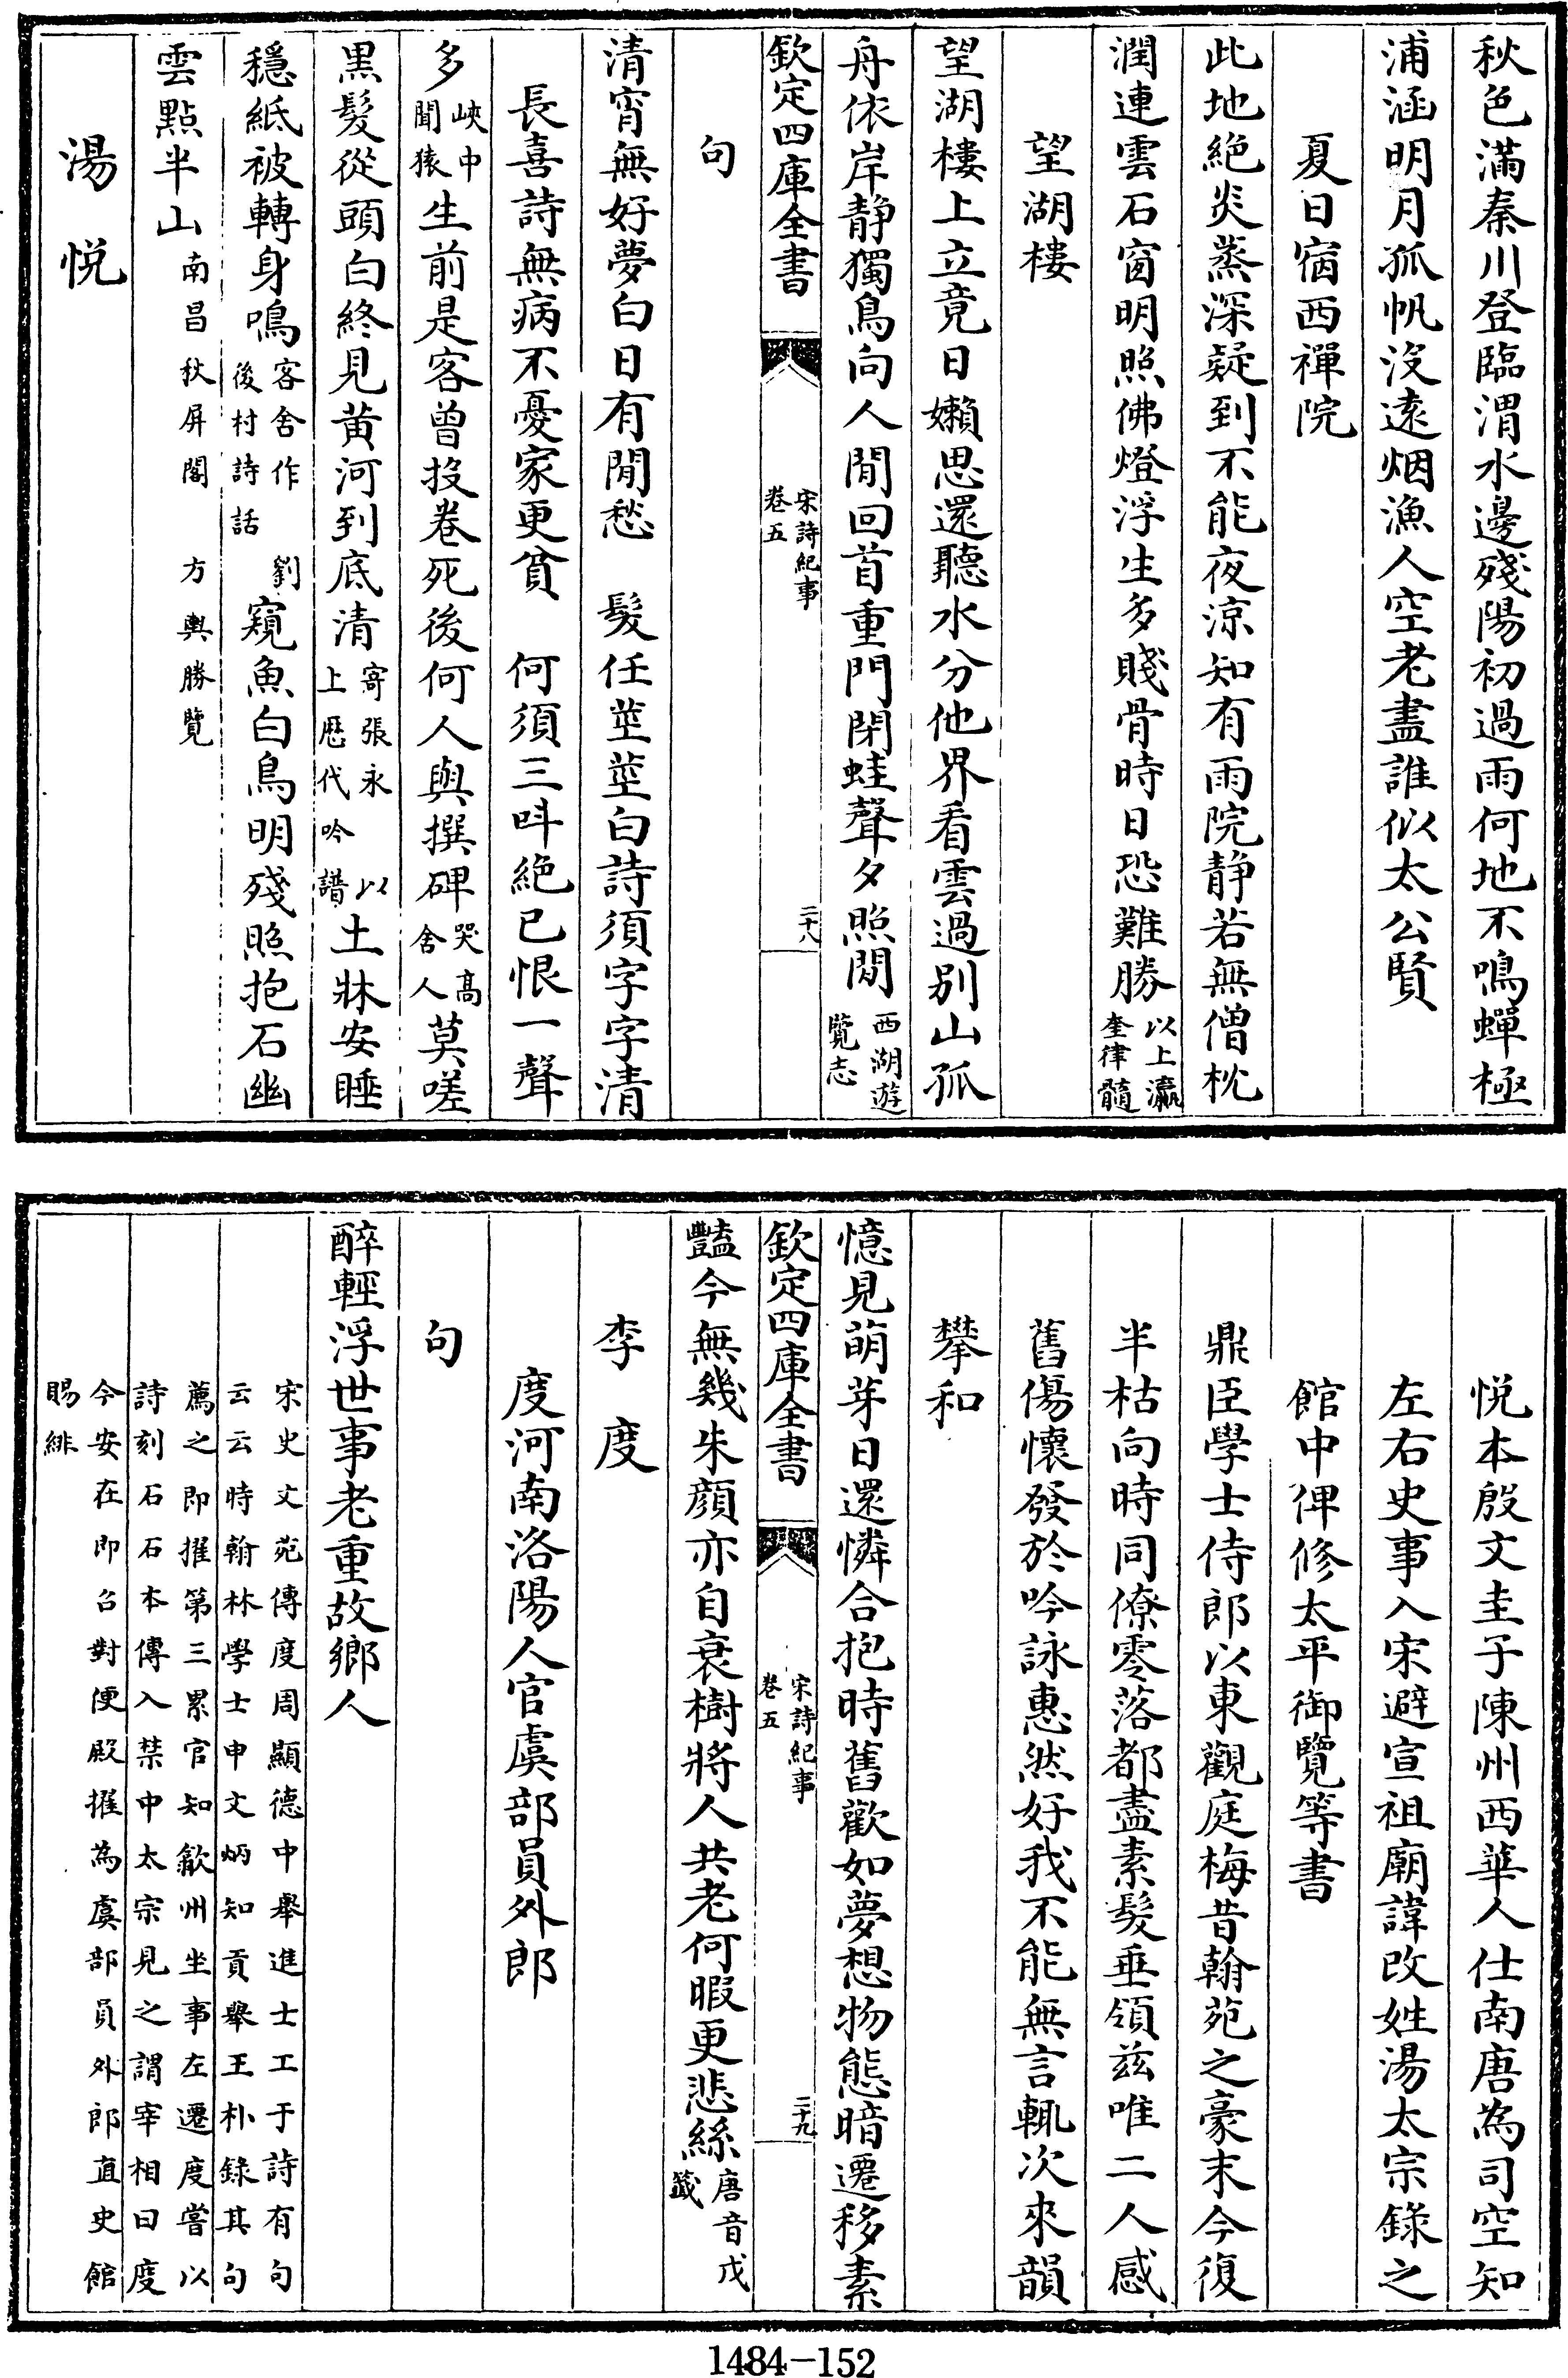 秋色滿秦川登臨渭水邊殘陽初過雨何地不鳴蟬極
浦涵明月孤帆沒遠烟漁人空老盡誰似太公賢
夏日宿西禪院
此地絶炎蒸深疑到不能夜涼知有雨院静若無僧枕
潤連雲石窗明照佛燈浮生多賤骨時日恐難勝以上瀛奎律髓
望湖樓
望湖樓上立竟日嬾思還聽水分他界看雲過别山孤
舟依岸静獨鳥向人閒回首重門閉蛙聲夕照閒西湖遊覽志
欽定四庫全書
宋詩紀事
卷五
二十八
句
清宵無好夢白日有閒愁　髮任莖莖白詩須字字清
長喜詩無病不憂家更貧　何須三呌絶已恨一聲
多峽中聞猿生前是客曾投卷死後何人與撰碑哭高舍人莫嗟
黒髮從頭白終見黄河到底清寄張永上歴代吟譜以土牀安睡
穩紙被轉身鳴客舍作後村詩話劉窺魚白鳥明殘照抱石幽
雲點半山南昌秋屏閣　方輿勝覽
湯悦
悦本殷文圭子陳州西華人仕南唐為司空知
左右史事入宋避宣祖廟諱改姓湯太宗錄之
館中俾修太平御覽等書
鼎臣學士侍郎以東觀庭梅昔翰苑之豪末今復
半枯向時同僚零落都盡素髮垂領兹唯二人感
舊傷懷發於吟詠惠然好我不能無言輒次來韻
攀和
憶見萌芽日還憐合抱時舊歡如夢想物態暗遷移素
欽定四庫全書
宋詩紀事
卷五
二十九
豔今無幾朱顔亦自衰樹將人共老何暇更悲絲唐音戊籖
李度
度河南洛陽人官虞部員外郎
句
醉輕浮世事老重故鄉人
宋史文苑傳度周顯德中舉進士工于詩有句
云云時翰林學士申文炳知貢舉王朴錄其句
薦之即擢第三累官知歙州坐事左遷度嘗以
詩刻石石本傳入禁中太宗見之謂宰相曰度
今安在即召對便殿擢為虞部員外郎直史館
賜緋
1484-152